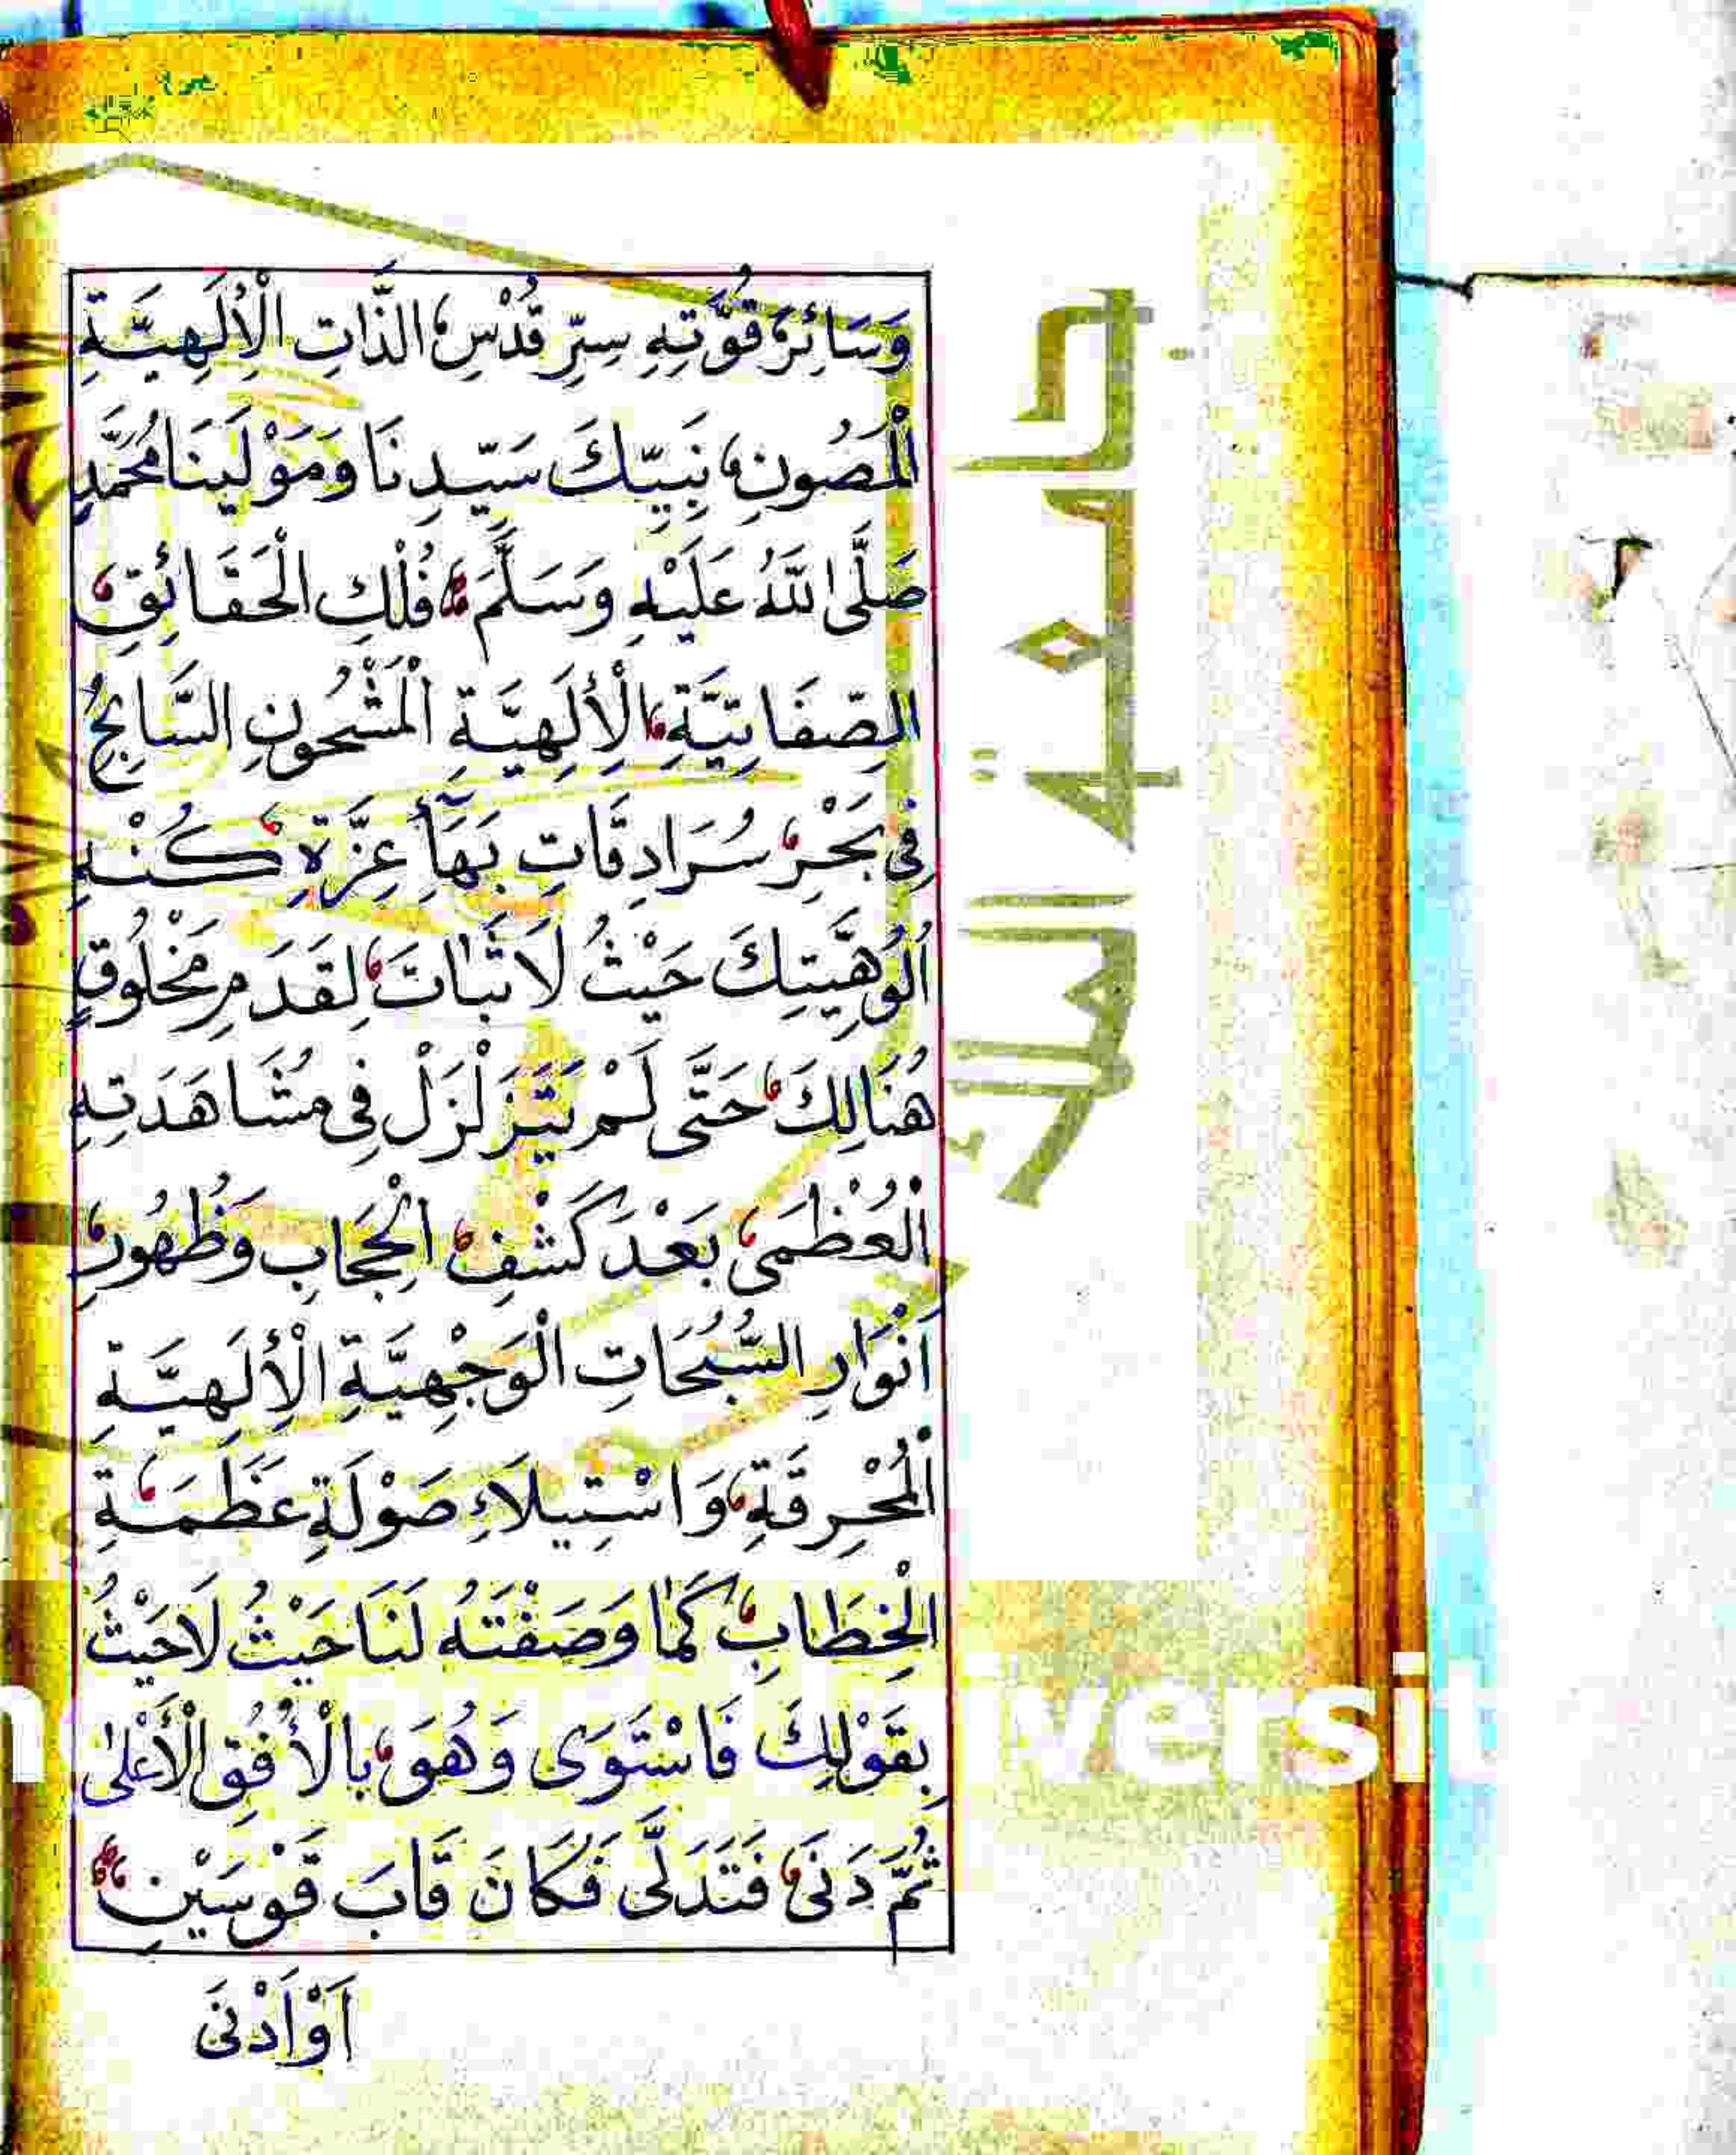 وَسَائِرَ قُوَّتِهِ سِرِّ قُدْسِ الذَّاتِ الْاِلَهِيَّةِ
الْمَصُونِ نَبِيِّكَ سَيِّدِنَا وَمَوْلَينَا مُحَمَّدٍ
صَلَّى اللّٰهُ عَلَيْهِ وَسَلَّمَ فُلْكِ الْحَقَائِقِ
الصِّفَاتِيَّةِ الْأِلَهِيَّةِ الْمَشْحُونِ السَّابِحُ
فِى بَحْرِ سُرَادِقَاتِ بَهَآءِ عِزَّةِ كُنْهِ
اُلُوهِيَّتِكَ حَيْثُ لَا ثَبَاتَ لِقَدَمِ مَخْلُوقٍ
هُنَالِكَ حَتَّى لَمْ يَتَزَلْزَلْ فِى مُشَاهَدَتِهِ
الْعُظْمَى بَعْدَ كَشْفِ الْحِجَابِ وَظُهُورِ
اَنْوَارِ السُّبُحَاتِ الْوَجْهِيَّةِ الْأِلَهِيَّةِ
الْمُحْرِقَةِ وَاسْتِيلَاءِ صَوْلَةِ عَظَمَةِ
الْخِطَابِ كَمَا وَصَفْتَهُ لَنَا حَيْثُ لَا حَيْثُ
بِقَوْلِكَ فَاسْتَوَى وَهُوَ بِالْأُفُقِ الْأَعْلٰى
ثُمَّ دَنَى فَتَدَلَّى فَكَانَ قَابَ قَوْسَيْنِ
اَوْ اَدْنَى
جامعة الملك
iversit